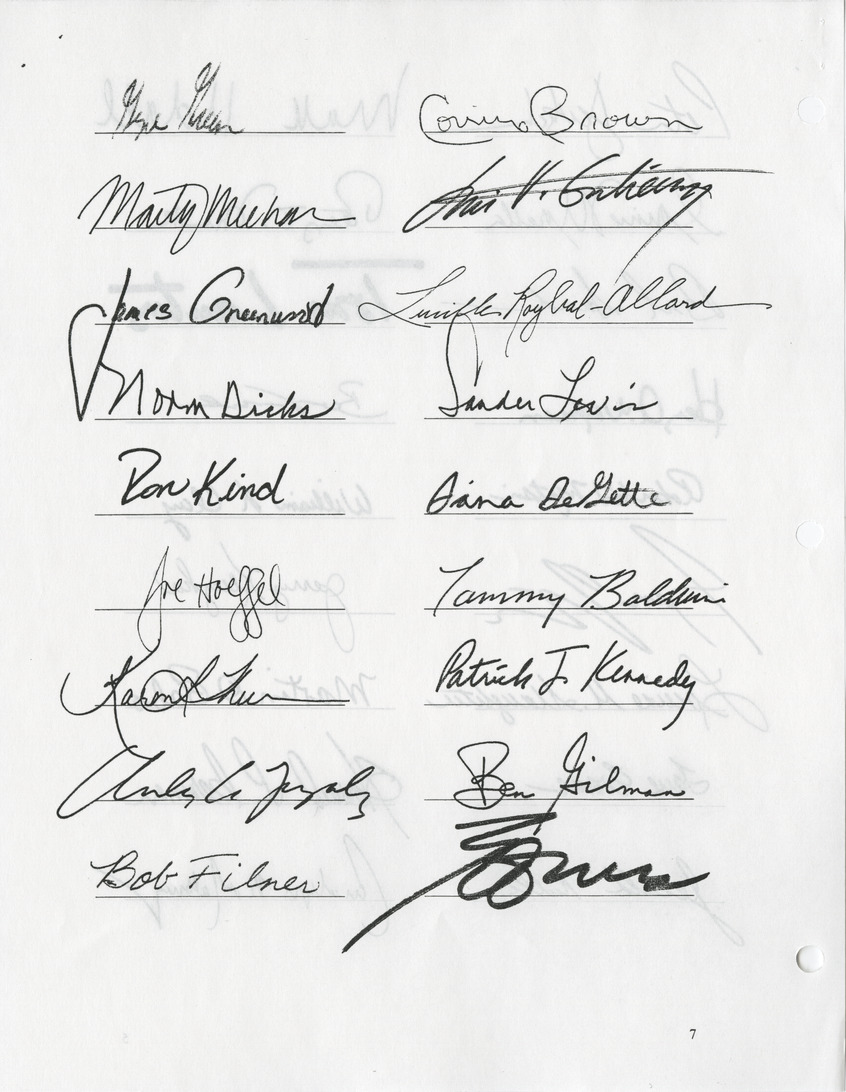 Gene Green
Corrine Brown
Marty Meehan
Luis V. Gutierrez
James Greenwood
Lucille Roybal-Allard
Norm Dicks
Sander Levin
Ron Kind
Diana DeGette
Joe Hoeffel
Tammy Baldwin
Karen L Thurman
Patrick J. Kennedy
Ben Gilman
Bob Filner
7